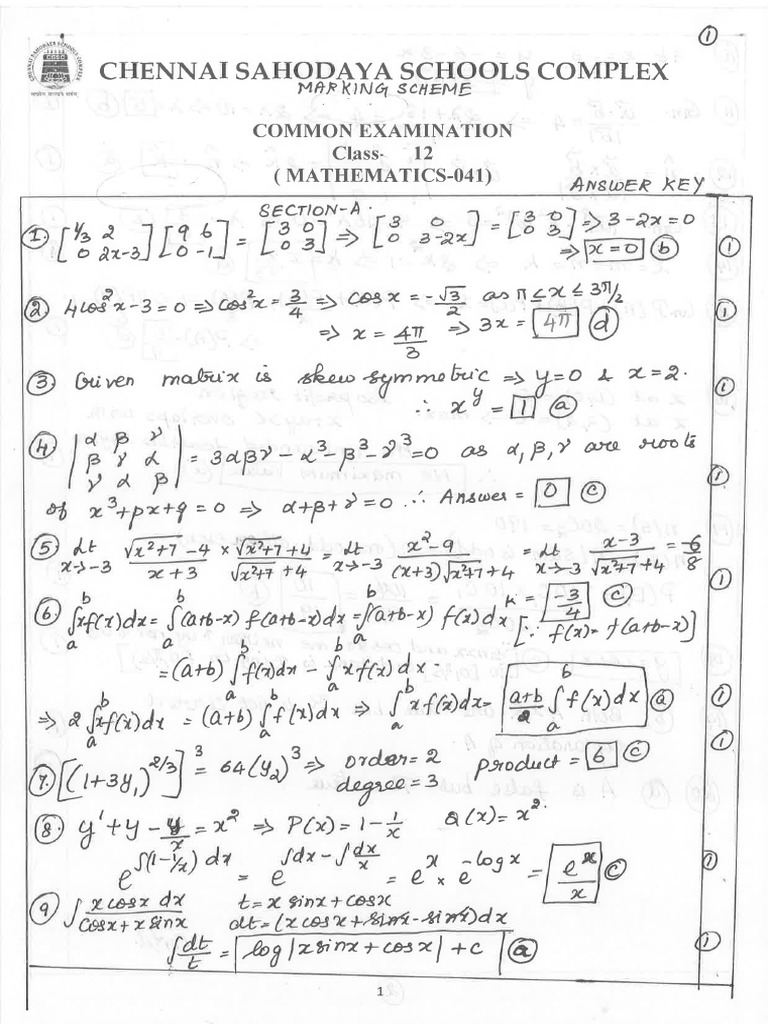 ①
CHENNAI SAHODAYA SCHOOLS COMPLEX
MARKING SCHEME
COMMON EXAMINATION
Class- 12
( MATHEMATICS-041)
ANSWER KEY
SECTION-A.
① [1/3 2; 0 2x-3] [9 6; 0 -1] = [3 0; 0 3] ⇒ [3 0; 0 3-2x] = [3 0; 0 3] ⇒ 3-2x=0
⇒ x=0 ⓑ ①
② 4cos²x-3=0 ⇒ cos²x = 3/4 ⇒ cosx = -√3/2 as π≤x≤3π/2 ①
⇒ x = 4π/3 ⇒ 3x = 4π ⓓ
③ Given matrix is skew symmetric ⇒ y=0 & x=2.
∴ x^y = 1 ⓐ ①
④ |α β γ; β γ α; γ α β| = 3αβγ-α³-β³-γ³=0 as α,β,γ are roots
of x³+px+q=0 ⇒ α+β+γ=0 ∴ Answer = 0 ⓒ ①
⑤ Lt x→-3 (√x²+7 -4)/(x+3) × (√x²+7+4)/(√x²+7+4) = Lt x→-3 (x²-9)/((x+3)√x²+7+4) = Lt x→-3 (x-3)/(√x²+7+4) = -6/8
K = -3/4 ⓒ ①
⑥ ∫ₐᵇ xf(x)dx = ∫ₐᵇ (a+b-x) f(a+b-x)dx = ∫ₐᵇ (a+b-x) f(x)dx [∵ f(x)= f(a+b-x)]
= (a+b) ∫ₐᵇ f(x)dx - ∫ₐᵇ xf(x)dx.
⇒ 2∫ₐᵇ xf(x)dx = (a+b) ∫ₐᵇ f(x)dx ⇒ ∫ₐᵇ xf(x)dx = (a+b)/2 ∫ₐᵇ f(x)dx ⓐ ①
⑦ [(1+3y₁)^2/3]³ = 64(y₂)³ ⇒ order=2 degree=3 product = 6 ⓒ ①
⑧ y'+y - y/x = x² ⇒ P(x) = 1 - 1/x Q(x) = x².
e^∫(1-1/x)dx = e^∫dx-∫dx/x = e^x × e^-logx = e^x/x ⓒ ①
⑨ ∫ xcosx dx/(cosx+xsinx) t = x sinx+cosx
dt = (x cosx + sinx - sinx)dx
∫ dt/t = log|xsinx+cosx| + c ⓐ ①
1